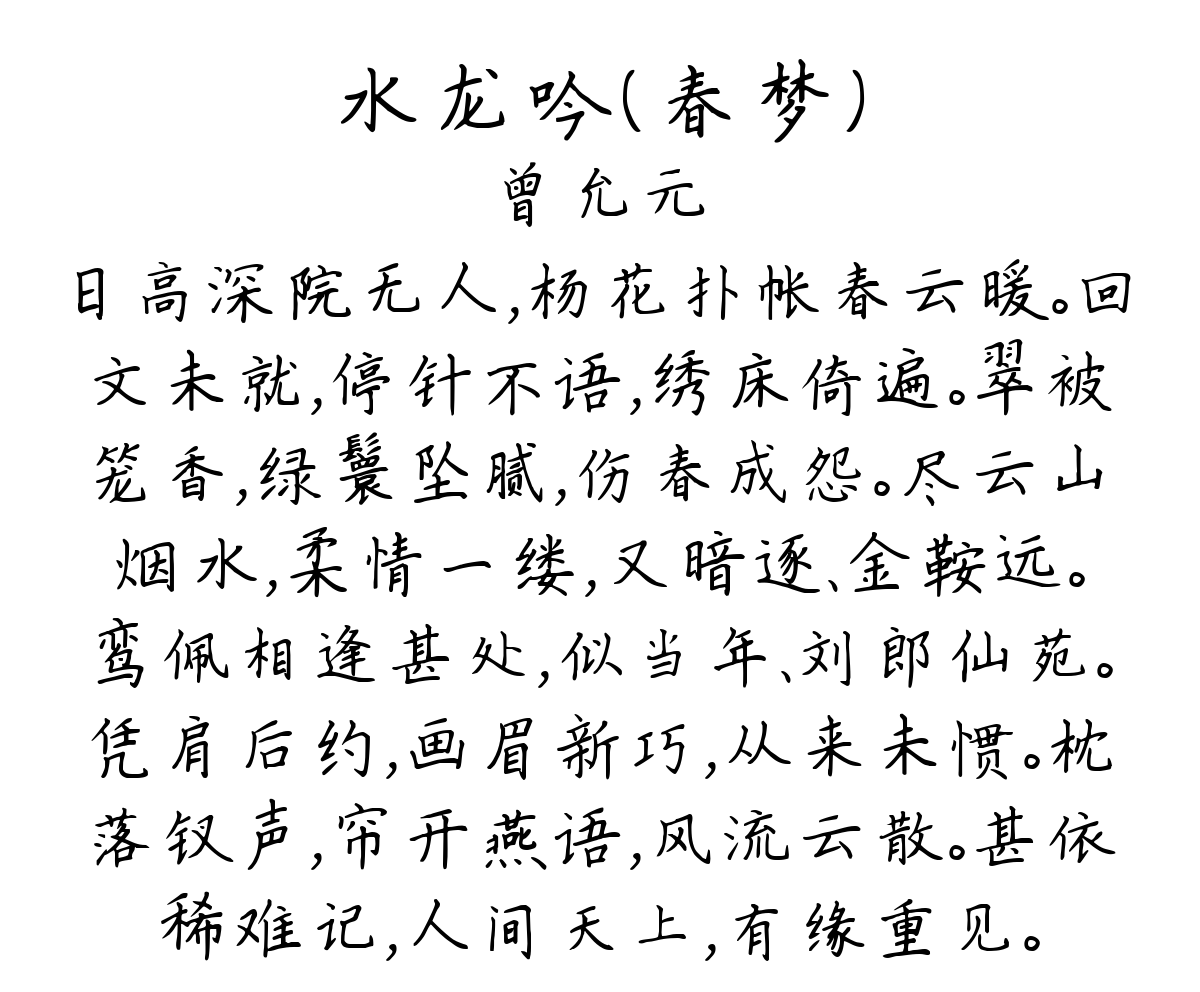 水龙吟(春梦)
曾允元
日高深院无人,杨花扑帐春云暖。回
文未就,停针不语,绣床倚遍。翠被
笼香,绿鬟坠腻,伤春成怨。尽云山
烟水,柔情一缕,又暗逐、金鞍远。
鸾佩相逢甚处,似当年、刘郎仙苑。
凭肩后约,画眉新巧,从来未惯。枕
落钗声,帘开燕语,风流云散。甚依
稀难记,人间天上,有缘重见。